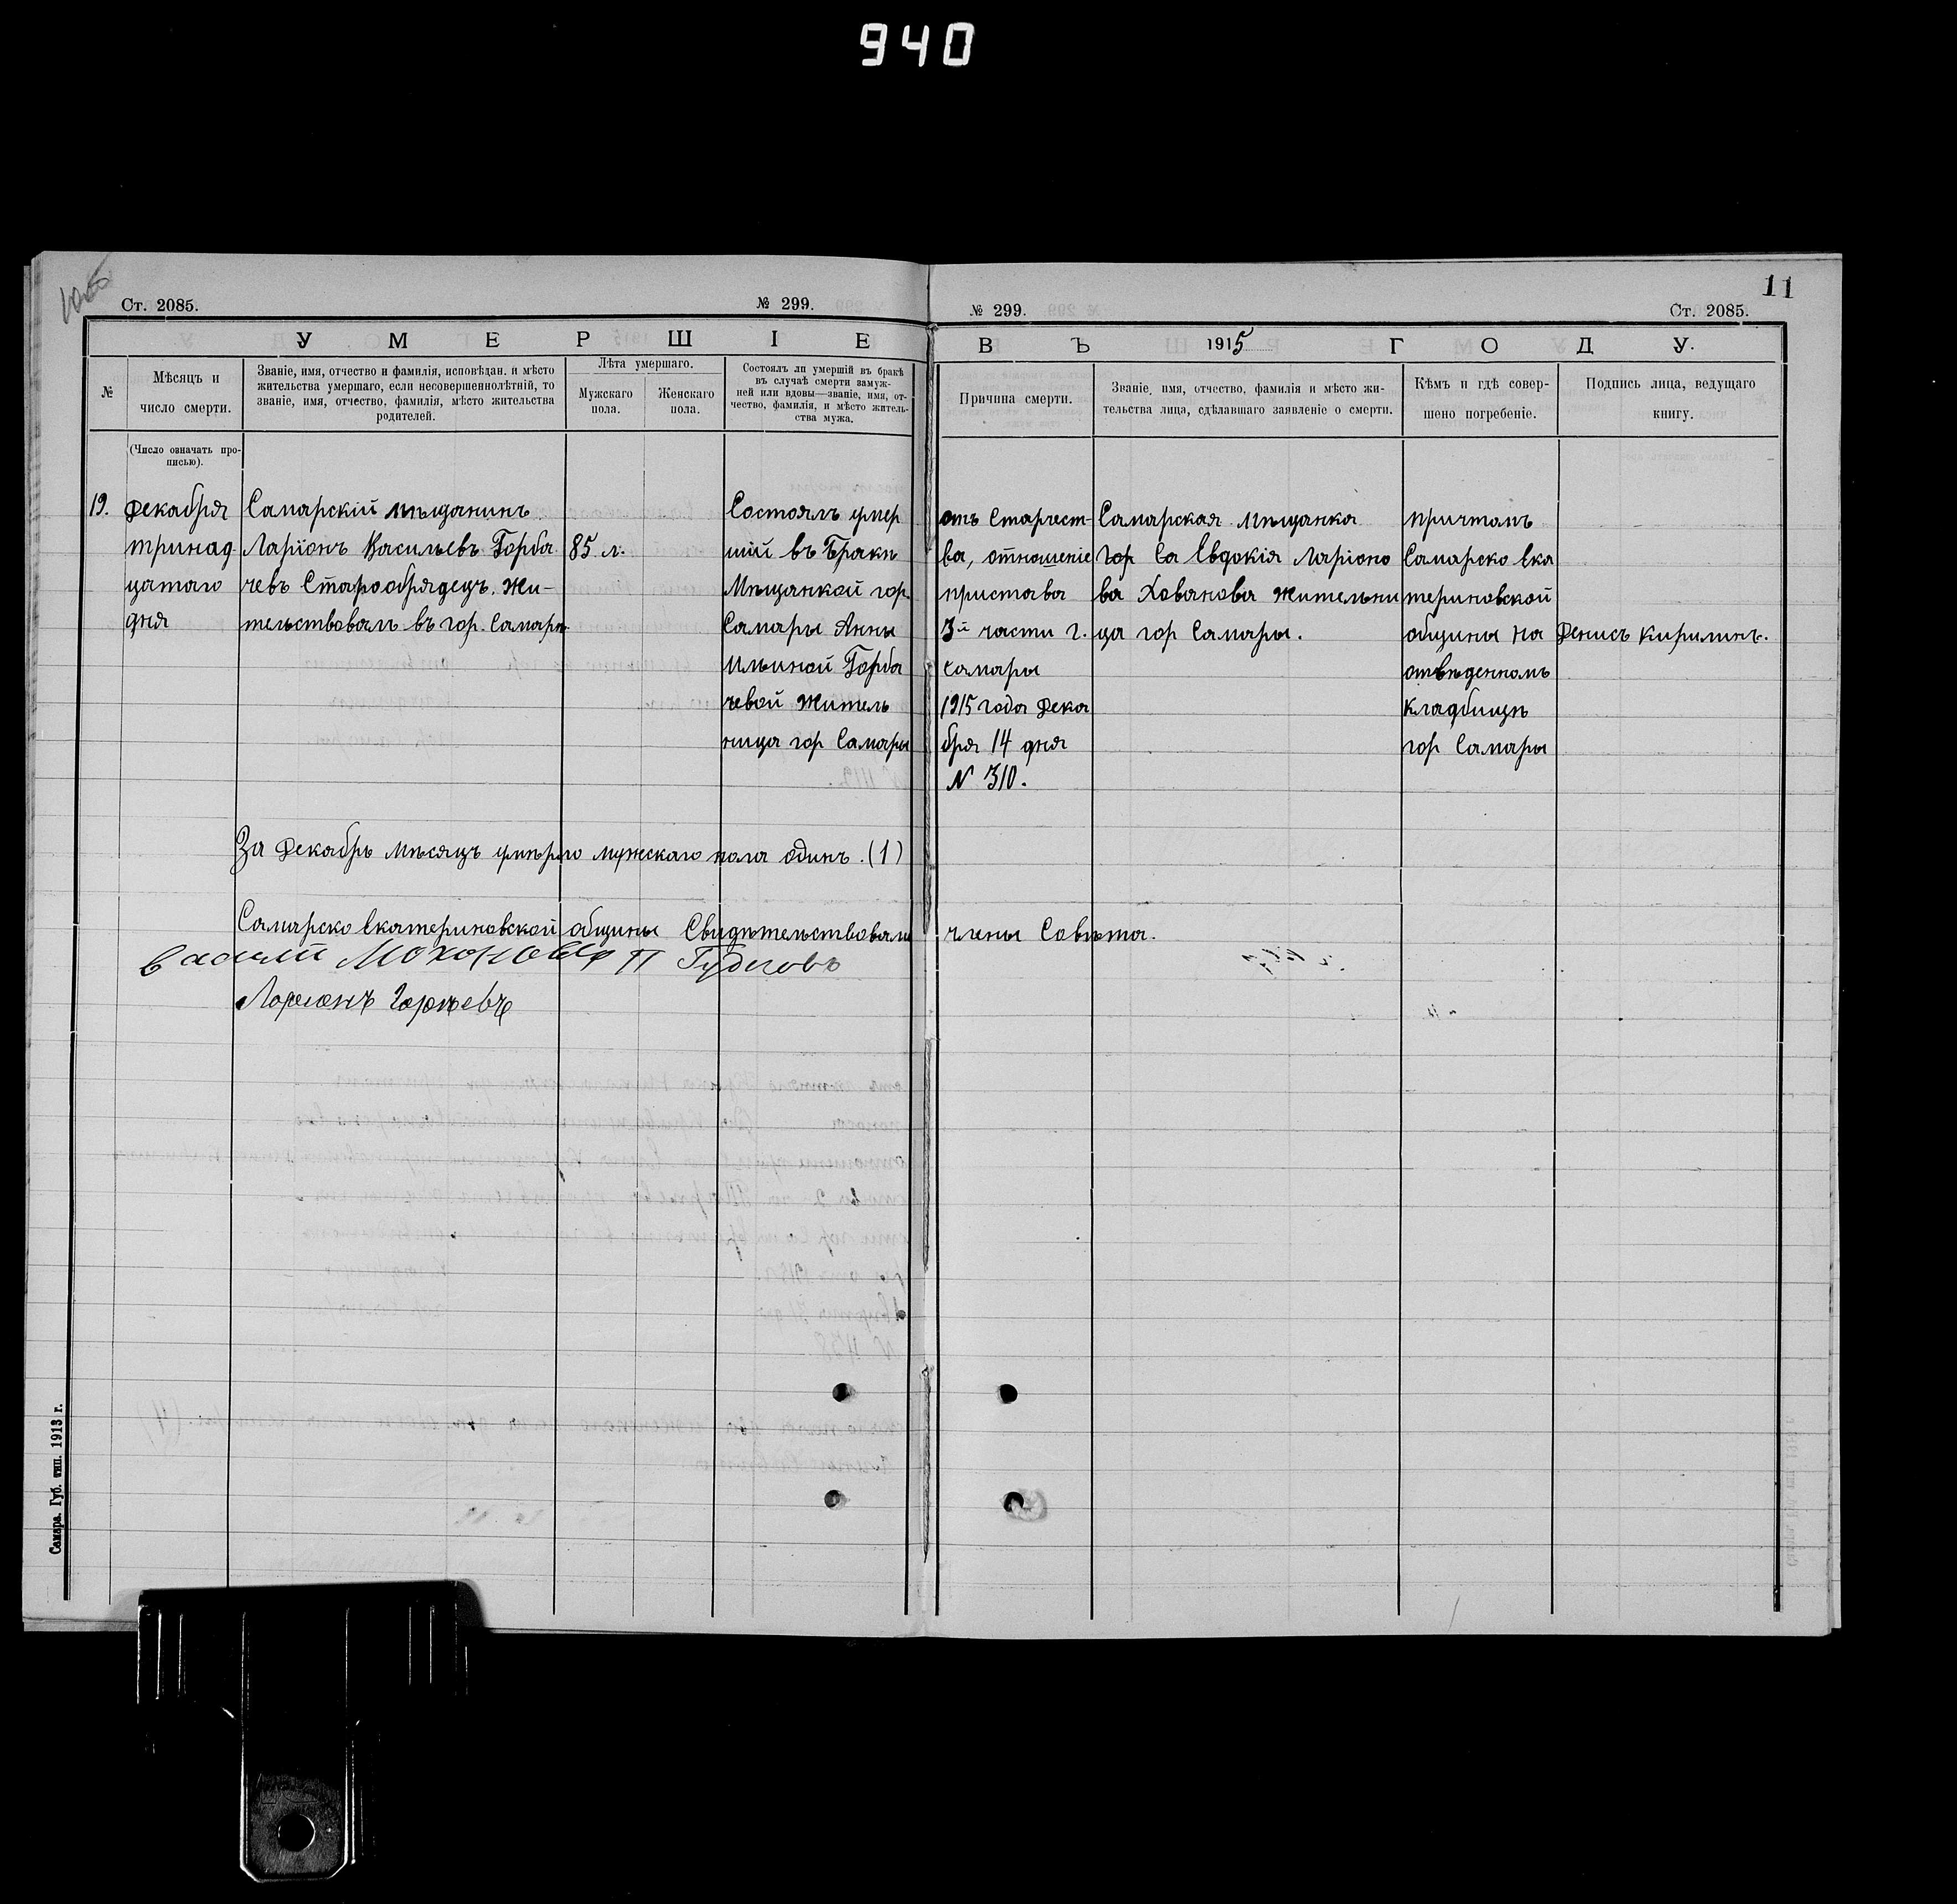 940
11
Ст. 2085.
№ 299.
№ 299.
Ст. 2085.
УМЕРШІЕ
ВЪ 1915 ГОДУ.
№
Мѣсяцъ и
число смерти.
Званіе, имя, отчество и фамилія, исповѣдан. и мѣсто
жительства умершаго, если несовершеннолѣтній, то
званіе, имя, отчество, фамилія, мѣсто жительства
родителей.
Лѣта умершаго.
Мужскаго
пола.
Женскаго
пола.
Состоялъ ли умершій въ бракѣ
въ случаѣ смерти замуж-
ней или вдовы—званіе, имя, от-
чество, фамилія, и мѣсто житель-
ства мужа.
Причина смерти.
Званіе, имя, отчество, фамилія и мѣсто жи-
тельства лица, сдѣлавшаго заявленіе о смерти.
Кѣмъ и гдѣ совер-
шено погребеніе.
Подпись лица, ведущаго
книгу.
(Число означать про-
писью).
19.
Декабря
тринад
цатаго
дня
Самарскій мѣщанинъ
Ларіонъ Васильевъ Горба
чевъ Старообрядецъ. Жи-
тельствовалъ въ гор. Самарѣ
85 л.
Состоялъ умер
шій въ Бракѣ
Мѣщанкой гор.
Самары Анны
Ильиной Горба
чевой Житель
ница гор Самары
отъ Старчест-
ва, отношеніе
пристава
3й части г.
Самары
1915 года Дека
бря 14 дня
N 310.
Самарская мѣщанка
гор Са Евдокія Ларіоно
ва Хованова Жительни
ца гор Самары.
причтомъ
Самарско Ека
териновской
общины на
отвѣденномъ
Кладбищѣ
гор Самары
Денисъ Кирилинъ.
За Декабрь Мѣсяцъ умѣрло мужескаго пола одинъ. (1)
Самарско Екатериновской общины Свидѣтельствовали члены Совѣта.
Василй П Гудковъ
Ларионъ
Самара. Губ. тип. 1913 г.